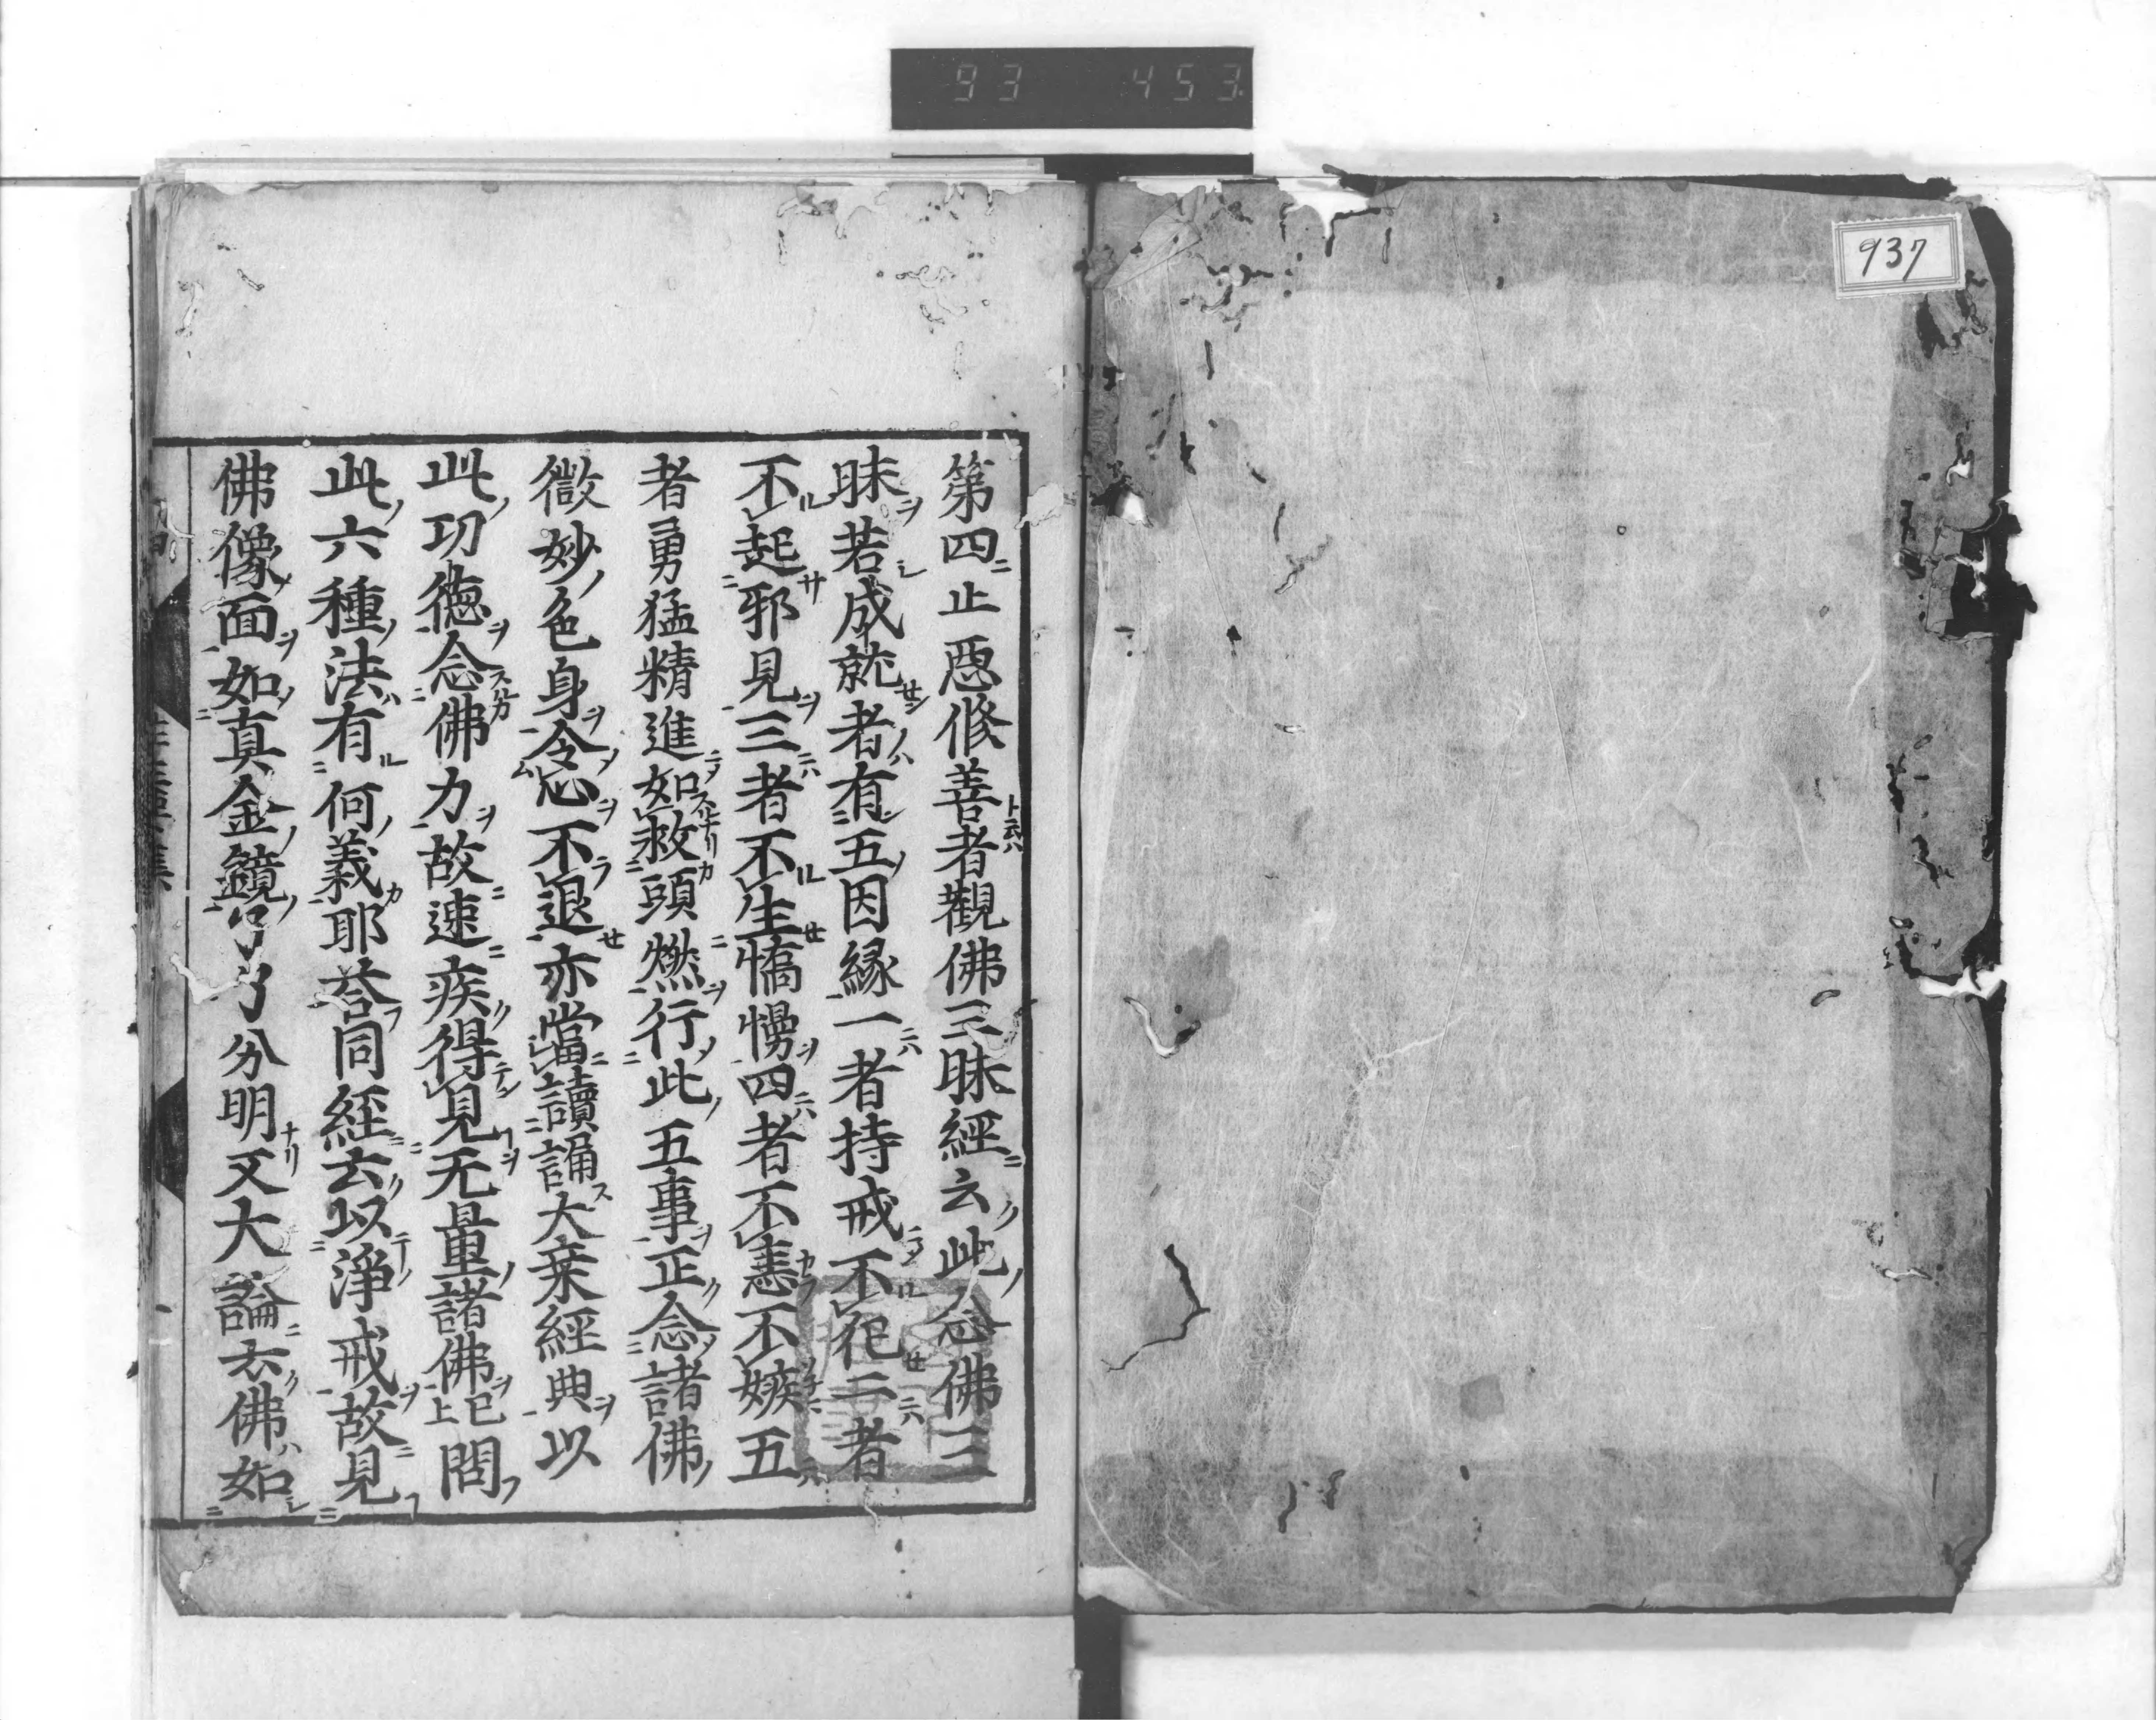 93 453
937
第四止惡修善者觀佛三昧經云此念佛三
昧若成就者有五因縁一者持戒不犯二者
不起邪見三者不生憍慢四者不恚不嫉五
者勇猛精進如救頭燃行此五事正念諸佛
微妙色身令心不退亦當讀誦大乘經典以
此功徳念佛力故速疾得見无量諸佛已上問
此六種法有何義耶答同經云以淨戒故見
佛像面如真金鏡了了分明又大論云佛如